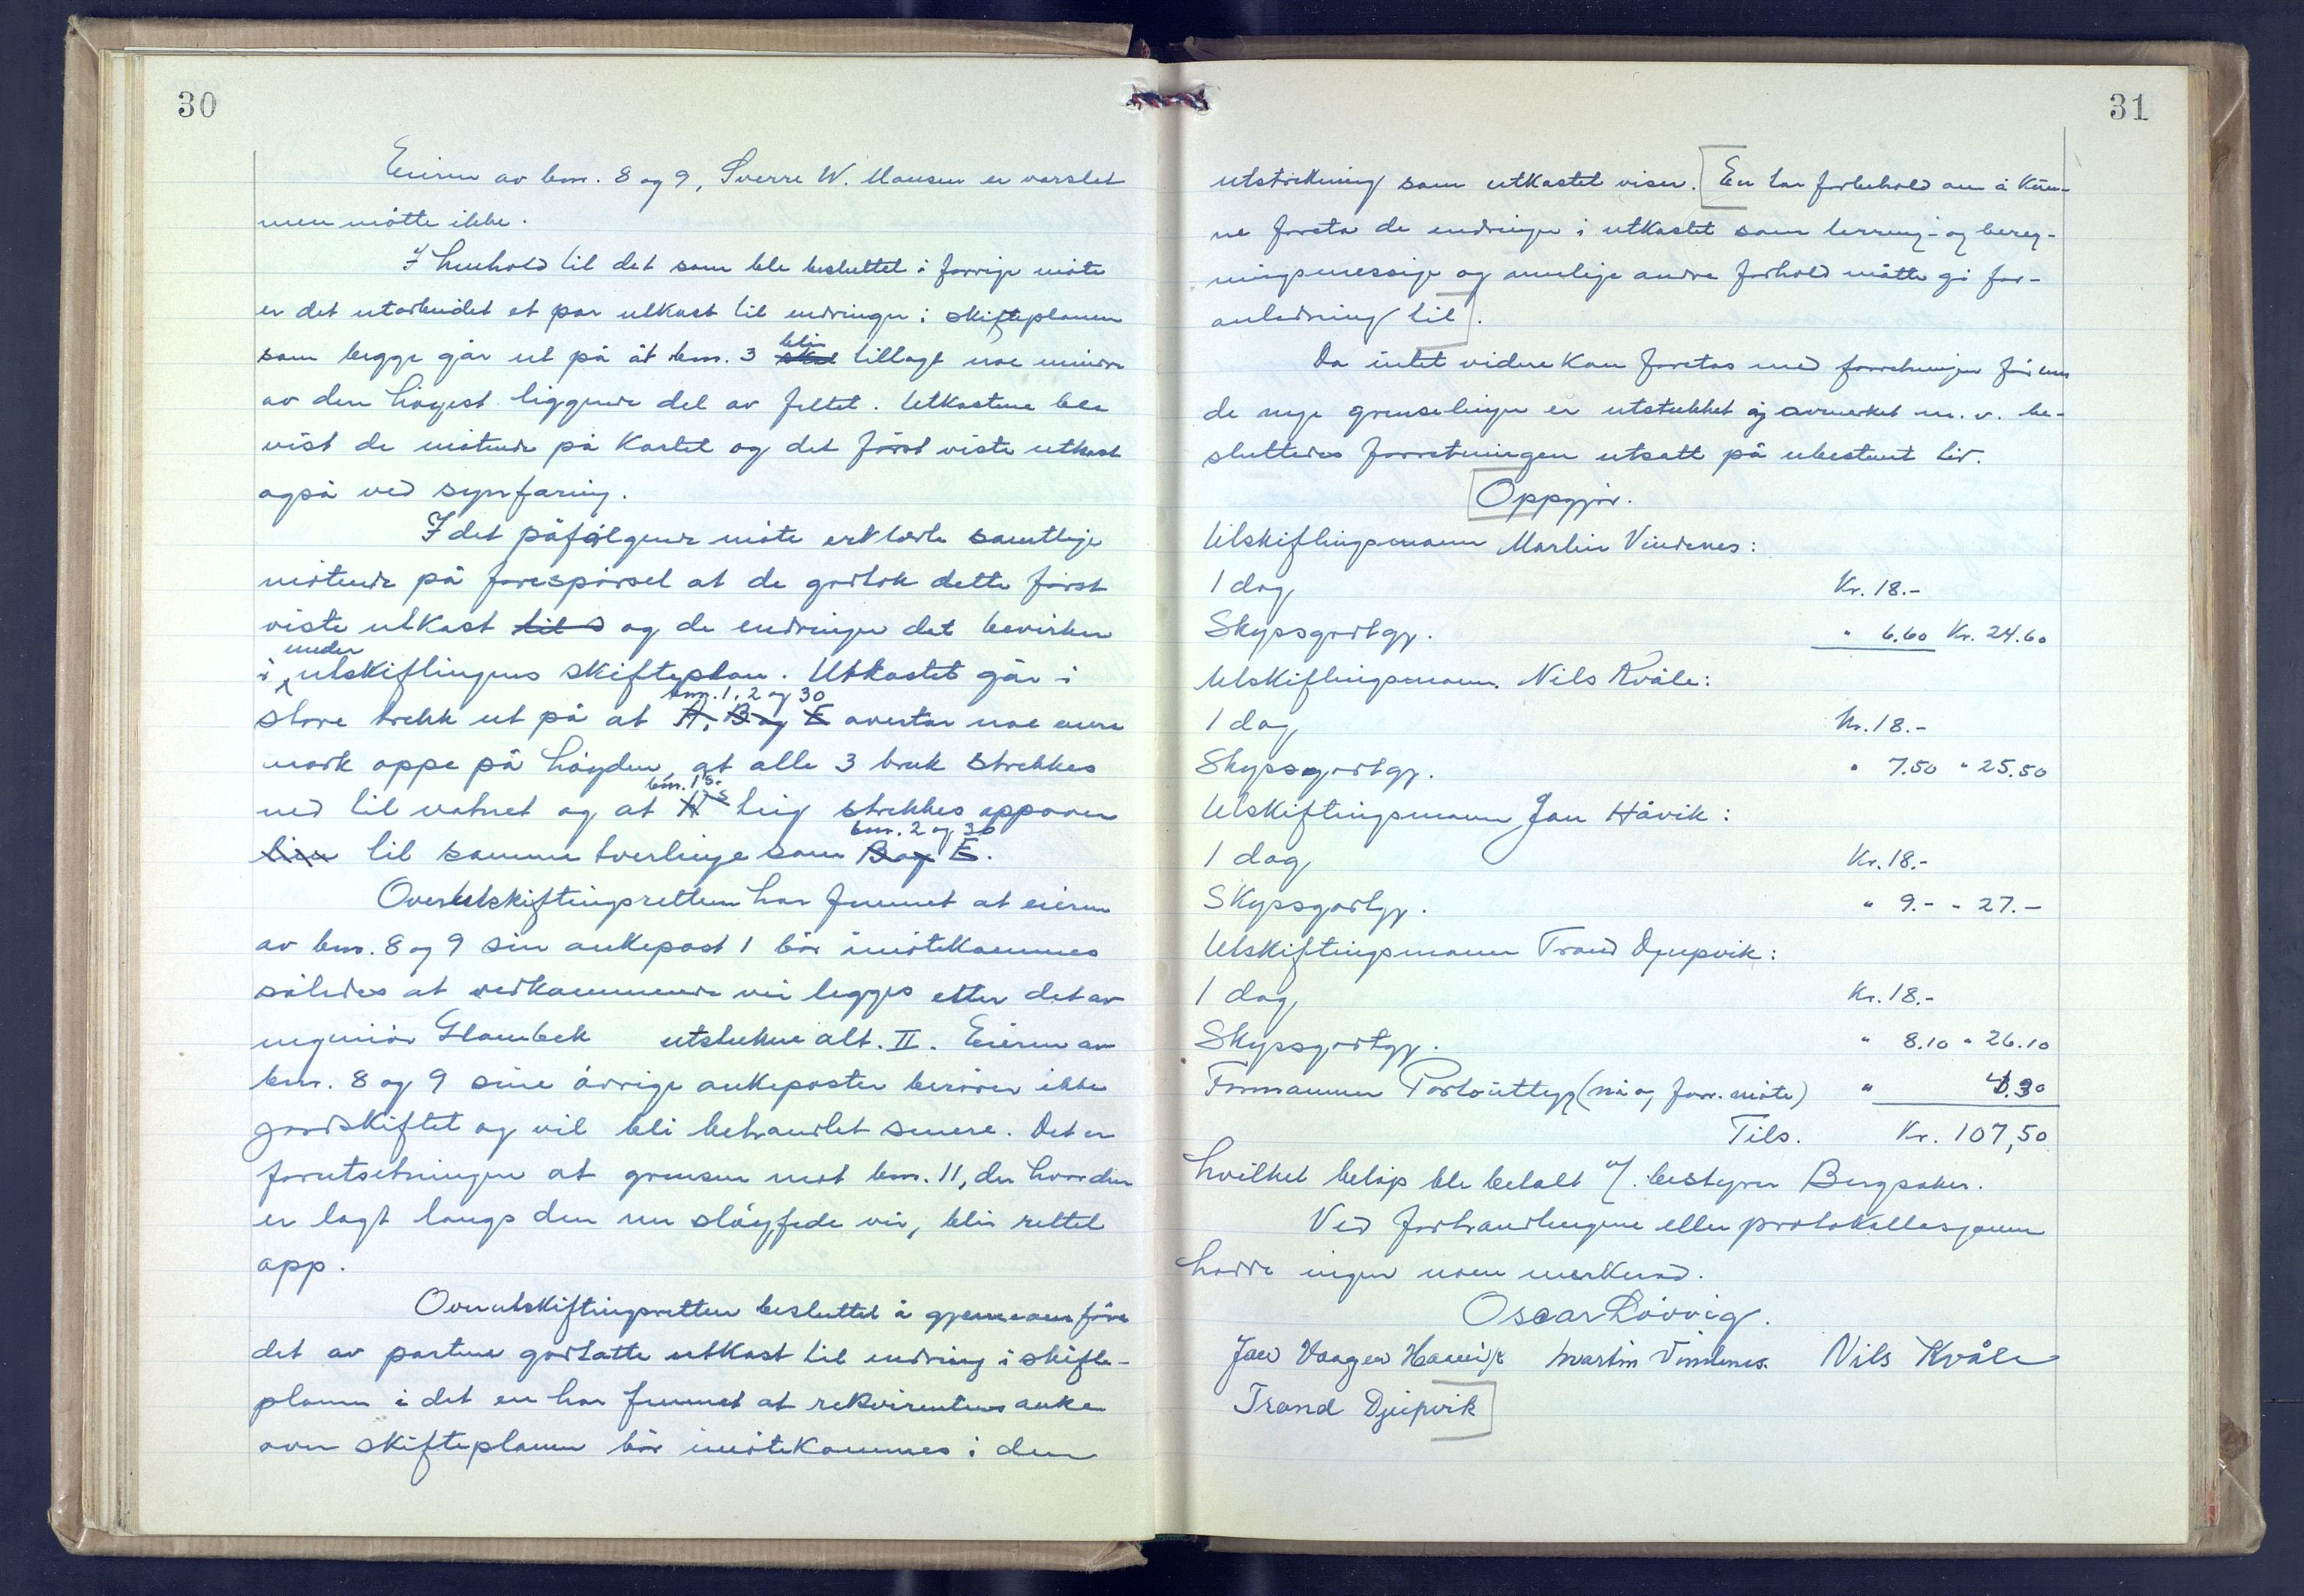 30
Eieren av bnr. 8 og 9, Sverre W. Mansen er varslet
men møtte ikke.
I henhold til det som ble besluttet i forrige møte
er det utarbeidet et par utkast til endringer i skifteplanen
som begge går ut på at bnr. 3 skal blir tillagt noe mindre
av den høyest liggende del av feltet. Utkastene ble
vist de møtende på kartet og det først viste utkast
også ved synfaring.
I det påfølgende møte erklærte samtlige
møtende på forespørsel at de godtok dette først
viste utkast til og de endringer det bevirker
i under utskiftingens skifteplan. Utkastet går i
store trekk ut på at A, B og E bnr. 1, 2 og 30 avertar noe mere
mark oppe på høyden, at alle 3 bruk strekkes
ned til vatnet og at A's bnr. 1's teig strekkes oppover
lien til samme tverlinje som B og E bnr. 2 og 30.
Overutskiftingsretten har funnet at eieren
av bnr. 8 og 9 sin ankepost 1 bør imøtekommes
således at vedkommende vei legges etter det av
ingeniør Glambek utstukne alt. II. Eieren av
bnr. 8 og 9 sine øvrige ankeposter berører ikke
jordskiftet og vil bli behandlet senere. Det er
forutsetningen at grensen mot bnr. 11, der hvor den
er lagt langs den nu sløyfede vei, blir rettet
opp.
Overutskiftingsretten besluttet å gjennemføre
det av partene godtatte utkast til endring i skifte-
planen i det en har funnet at rekvirentens anke
over skifteplanen bør imøtekommes i den
31
utstrekning som utkastet viser. [En tar forbehold om å kun-
ne foreta de endringer i utkastet som terreng- og bereg-
ningsmessige og mulige andre forhold måtte gi for-
anledning til].
Da intet videre kan foretas med forretningen før enn
de nye grenselinjer er utstukket og avmerket m.v. be-
sluttedes forretningen utsatt på ubestemt tid.
[Oppgjør.
Utskiftingsmann Martin Vindenes:
1 dag Kr. 18.-
Skyssgodtgj. " 6.60 Kr. 24.60
Utskiftingsmann Nils Kvåle:
1 dag Kr. 18.-
Skyssgodtgj. " 7.50 " 25.50
Utskiftingsmann Jan Håvik:
1 dag Kr. 18.-
Skyssgodtgj. " 9.- " 27.-
Utskiftingsmann Trond Djupvik:
1 dag Kr. 18.-
Skyssgodtgj. " 8.10 " 26.10
Formannen Portoutlegg (nå og forr. møte) " 4.30
Tils. Kr. 107,50
hvilket beløp ble betalt v/ bestyrer Bergsaker.
Ved forhandlingene eller protokollasjonen
hadde ingen noen merknad.
Oscar Løvvig.
Jan Vaagen Hauvik Martin Vindenes. Nils Kvåle
Trond Djupvik]